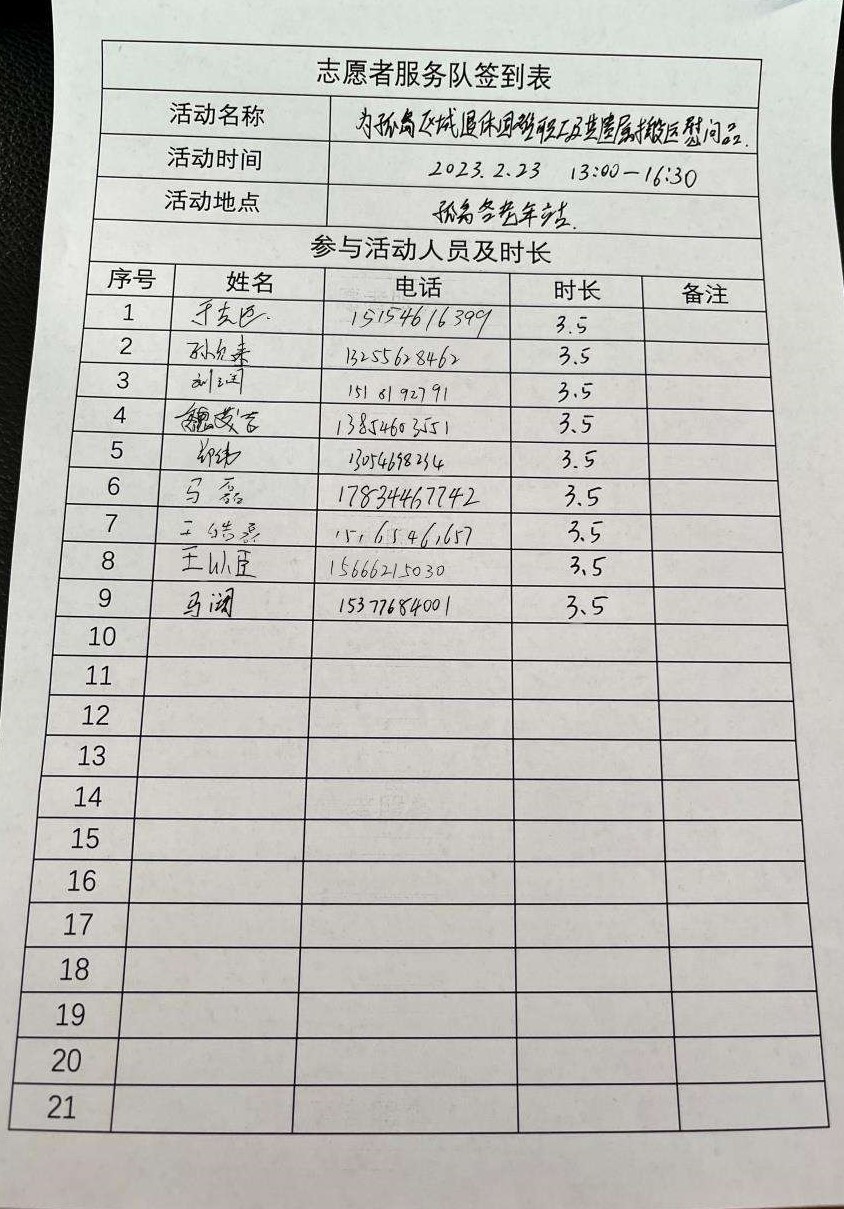 志愿者服务队签到表
活动名称 为孤岛区域退休困难职工及其遗属搬运慰问品.
活动时间 2023.2.23 13:00-16:30
活动地点 孤岛各老年站.
参与活动人员及时长
序号 姓名 电话 时长 备注
1 15154616399 3.5
2 13255628462 3.5
3 刘润 3.5
4 魏茂吉 13854603551 3.5
5 郑伟 13054698234 3.5
6 马磊 17834467742 3.5
7 王皓磊 3.5
8 王以臣 15666215030 3.5
9 马润 15377684001 3.5
10
11
12
13
14
15
16
17
18
19
20
21